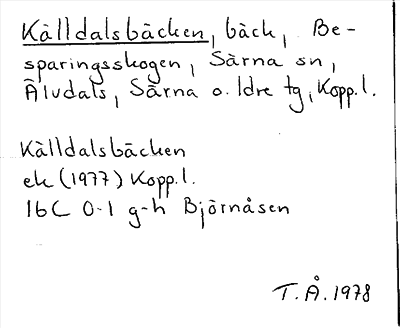 Källdalsbäcken, bäck, Be-
sparingsskogen, Särna sn,
Älvdals, Särna o. Idre tg, Kopp.l.
Källdalsbäcken
ek (1977) Kopp.l.
16C 0-1 g-h Björnåsen
T.Å. 1978